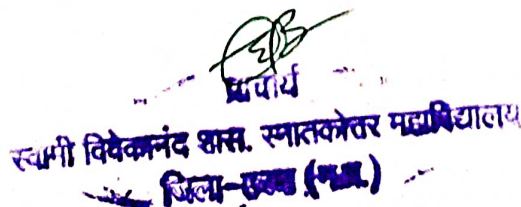 प्राचार्य
स्वामी विवेकानंद शास. स्नातकोत्तर महाविद्यालय
जिला- (म.प्र.)